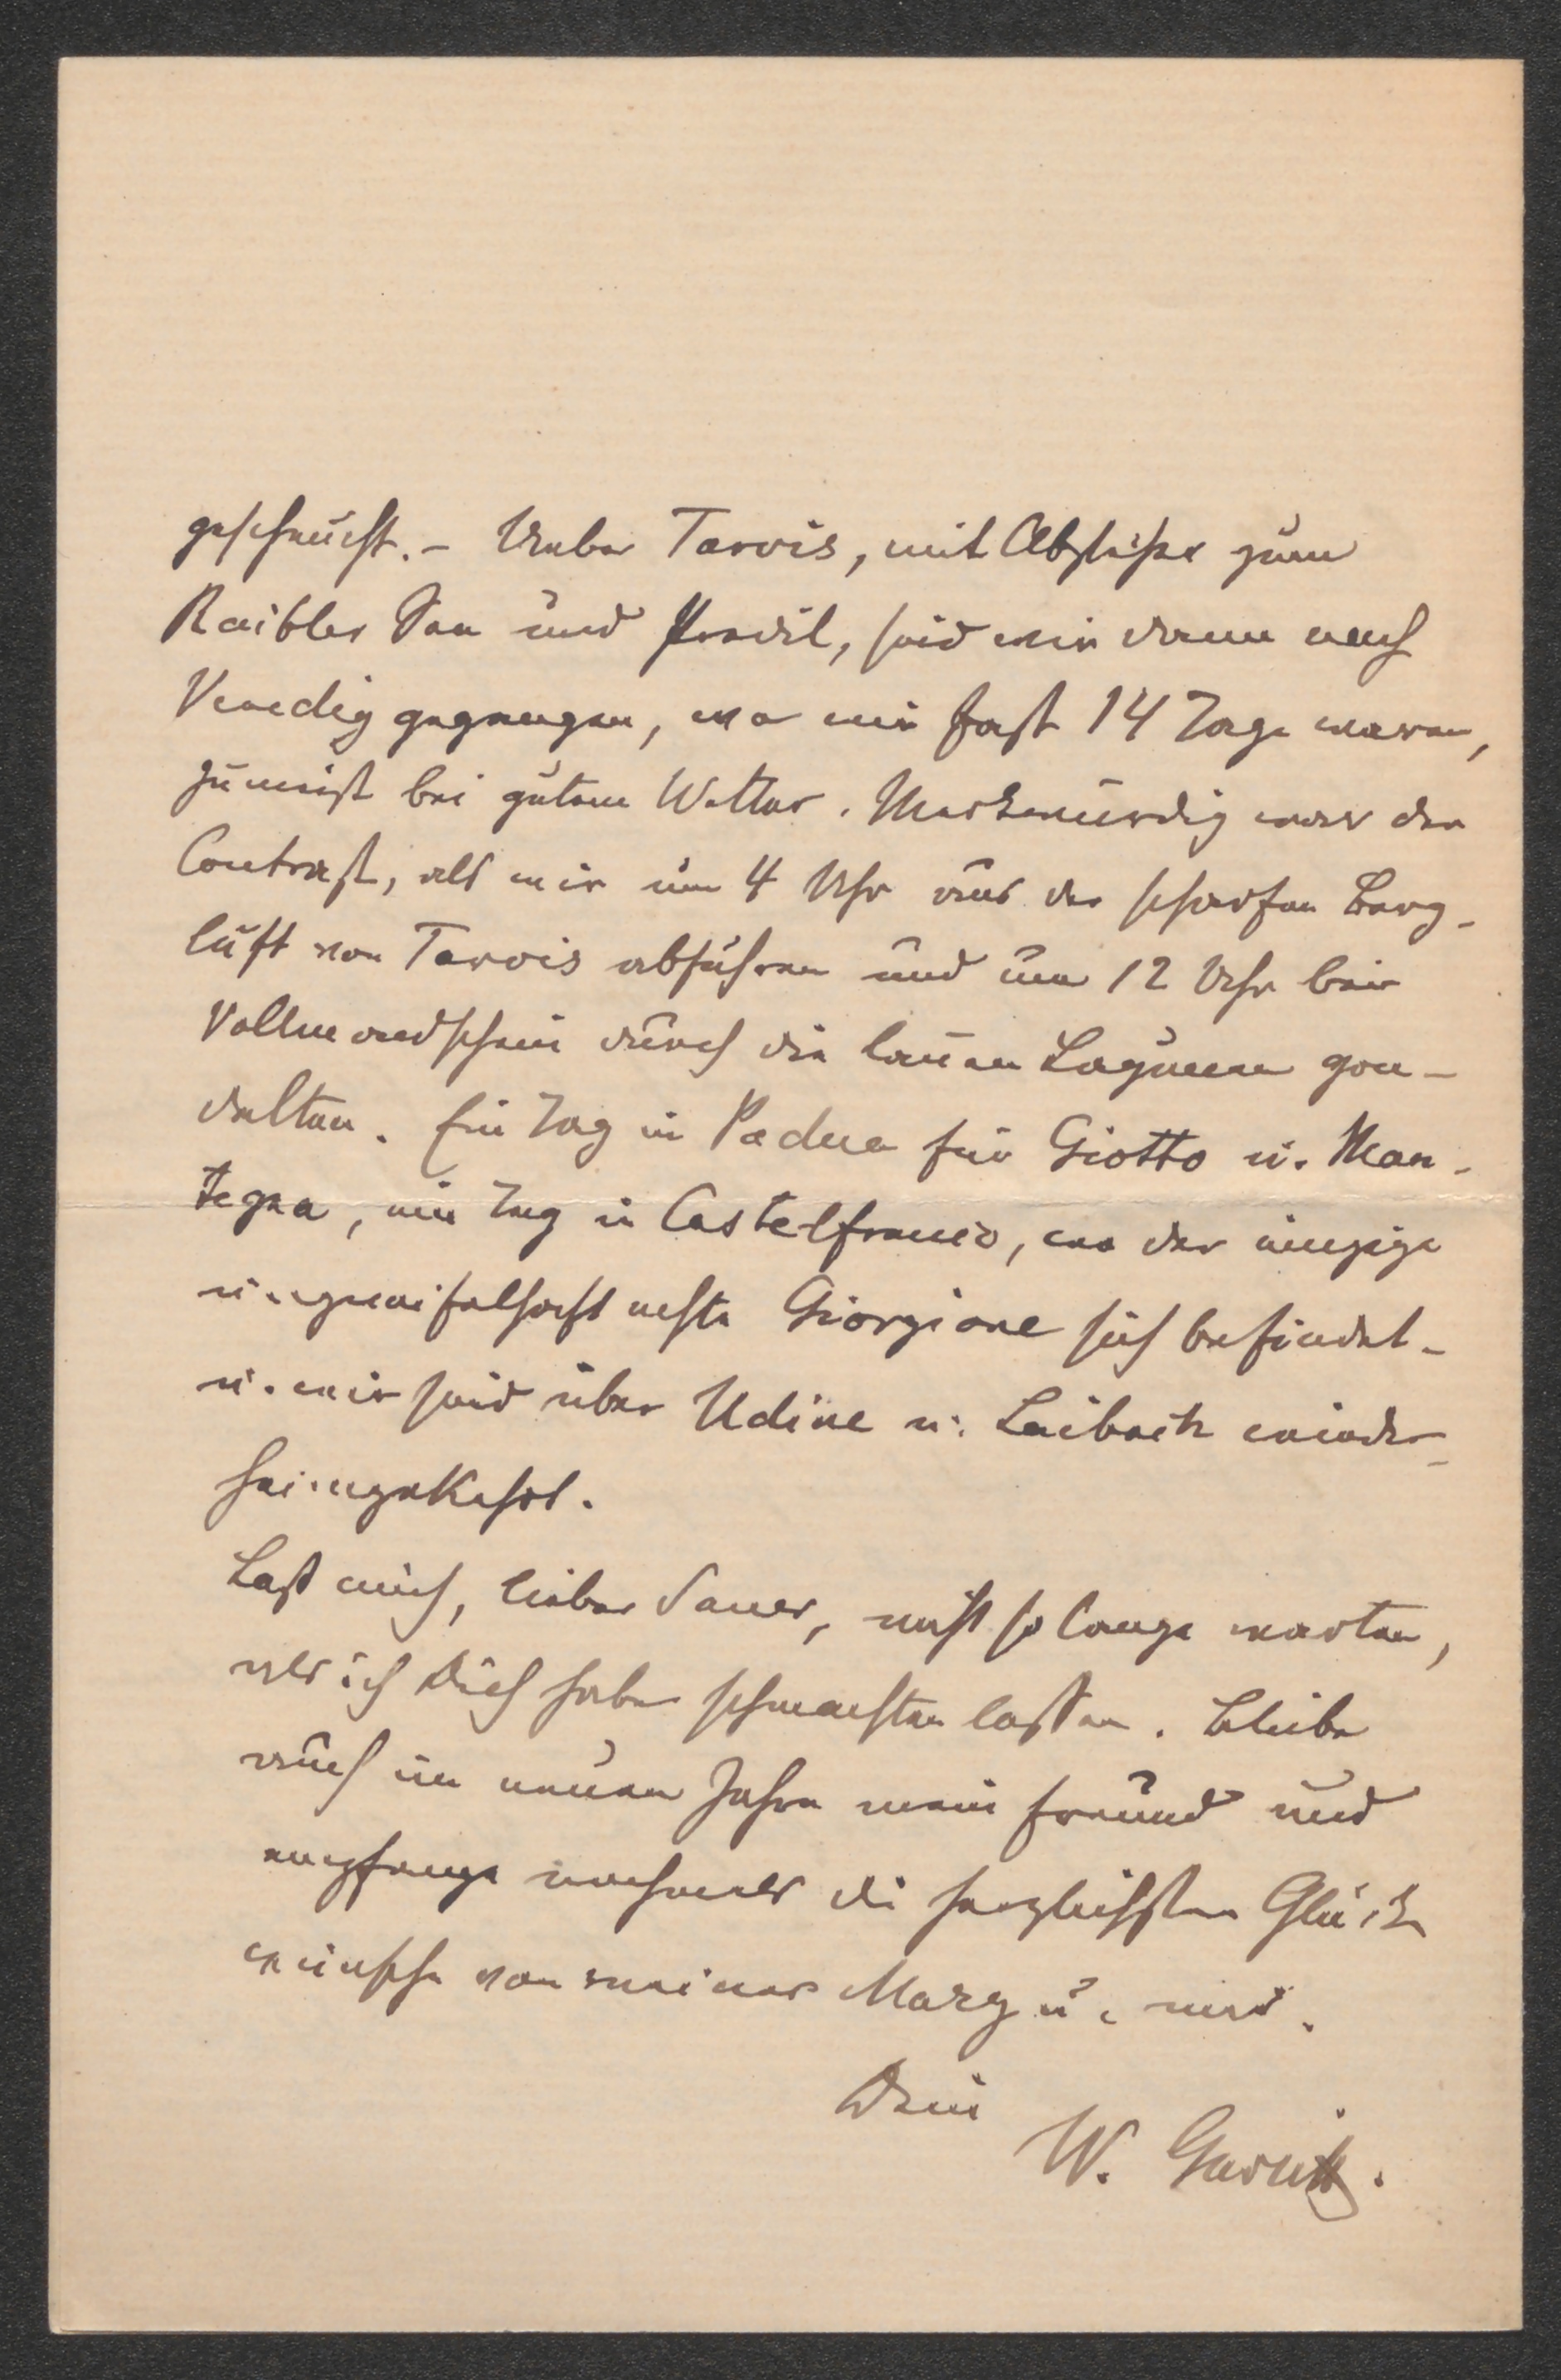 gescheucht. – Ueber Tarvis, mit Abstecher zum
Raibler See und Predil, sind wir dann nach
Venedig gegangen, wo wir fast 14 Tage waren,
zumeist bei gutem Wetter. Merkwürdig war der
Contrast, als wir um 4 Uhr aus der scharfen Berg-
luft von Tarvis abfuhren und um 12 Uhr bei
Vollmondschein durch die lauen Lagunen gon-
delten. Ein Tag in Padua für Giotto u. Man-
tegna, ein Tag in Castelfranco, wo der einzige
unzweifelhaft echte Giorgione sich befindet –
u. wir sind über Udine u. Laibach wieder
heimgekehrt.
Laß mich, lieber Sauer, nicht so lange warten,
als ich Dich habe schmachten lassen. Bleibe
auch im neuen Jahre mein Freund und
empfange nochmals die herzlichsten Glück
wünsche von meiner Marg u. mir.
Dein
W. Gurlitt.